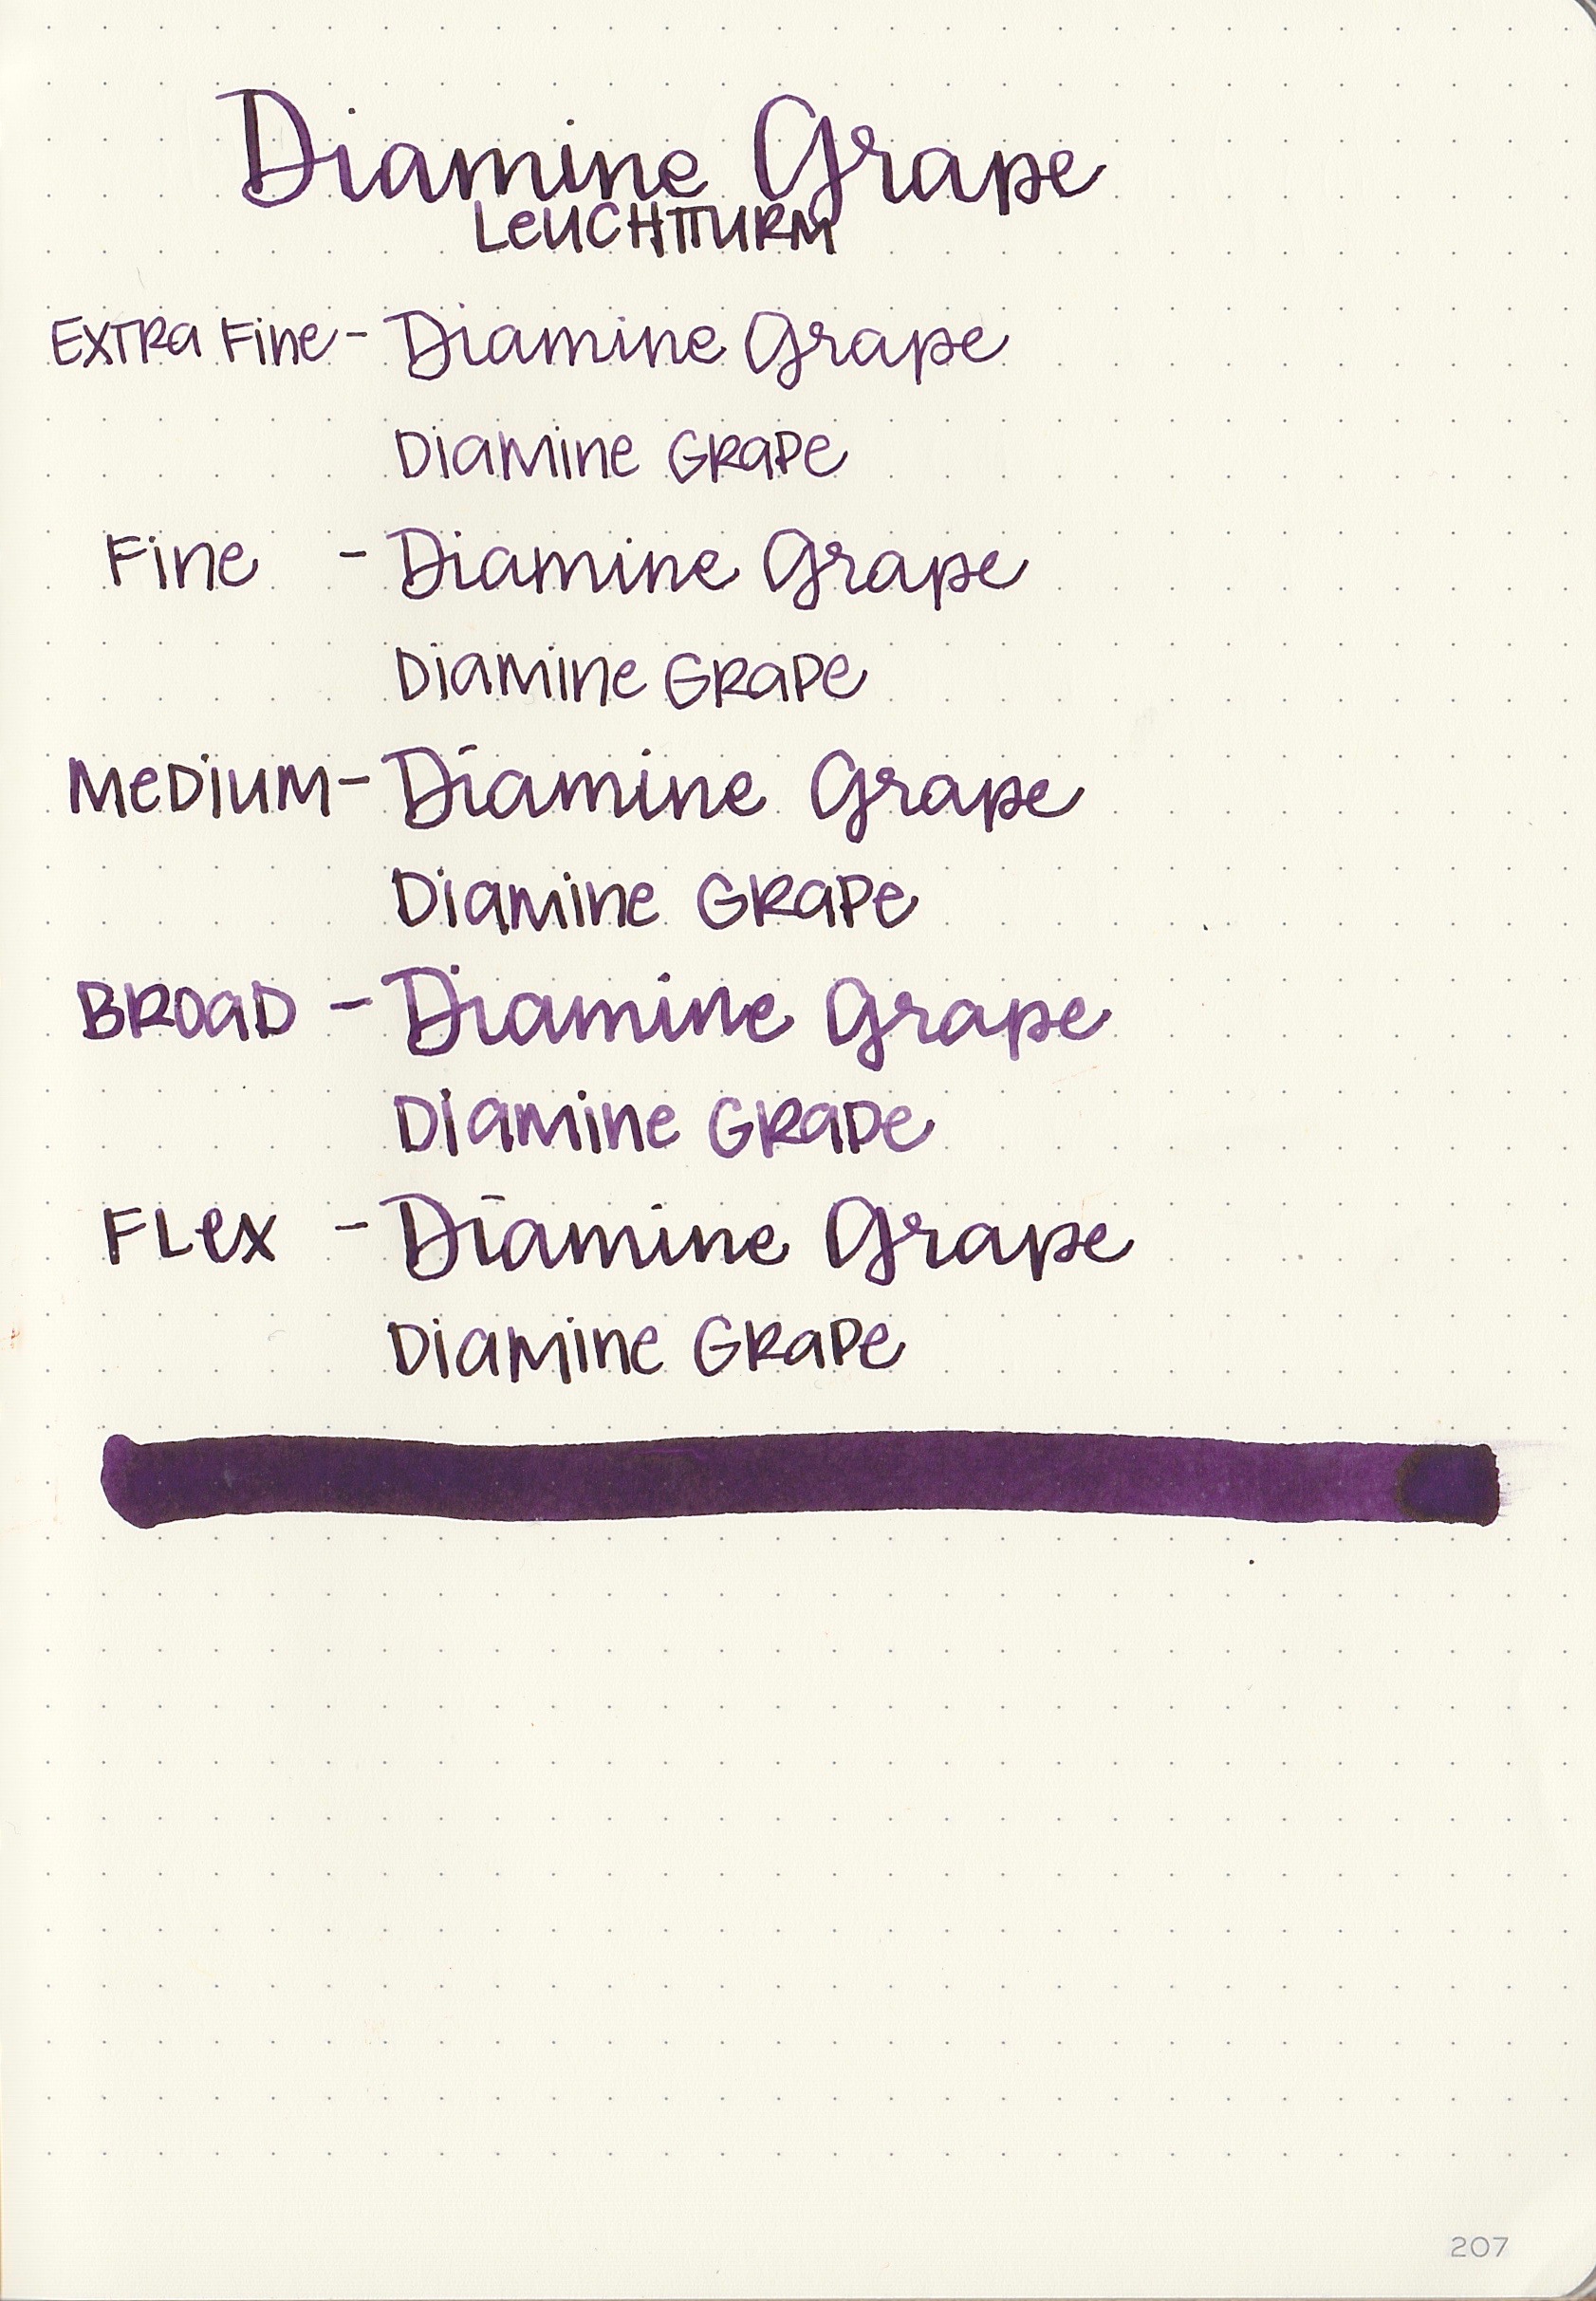 Diamine Grape
LeUCHTTURM
EXTRa Fine - Diamine Grape
Diamine GRaPe
Fine - Diamine Grape
Diamine GRaPe
MeDiUM - Diamine Grape
Diamine GRaPe
BROaD - Diamine Grape
Diamine GRaPe
FLex - Diamine Grape
Diamine GRaPe
207